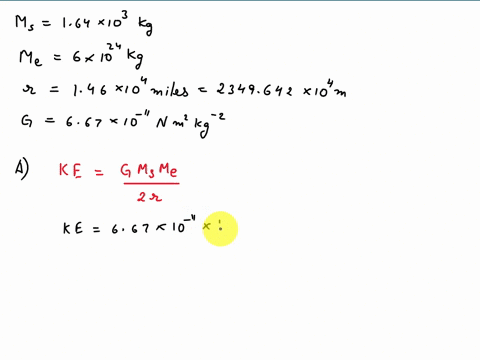 Ms = 1.64 × 10³ kg
Me = 6 × 10²⁴ kg
r = 1.46 × 10⁴ miles = 2349.642 × 10⁴ m
G = 6.67 × 10⁻¹¹ N m² kg⁻²
A) KE = G Ms Me / 2r
KE = 6.67 × 10⁻¹¹ ×